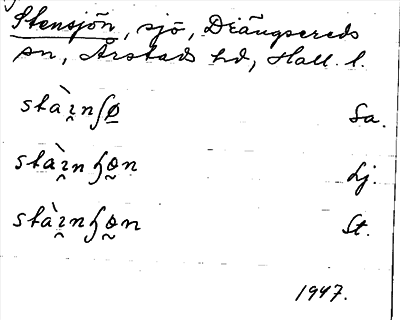 Stensjön, sjö, Drängsereds
sn, Årstads hd, Hall. l.
stàı̯nʃø̠ Sa.
stàı̯nɧø̰n Lj.
stàı̯nɧø̰n St.
1947.